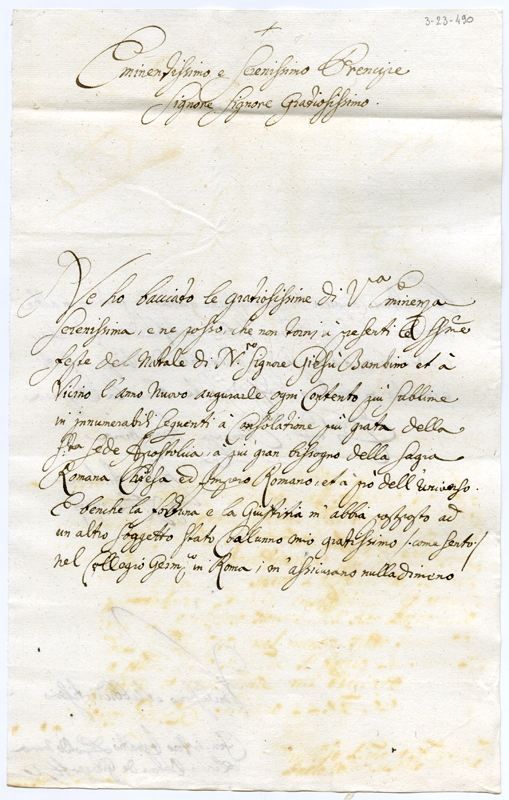 3-23-490
+
Eminentissimo e Serenissimo Prencipe
Signore Signore Gratiosissimo.
Ne ho bacciato le gratiosissime di V.ra Eminenza
Serenissima, e ne posso, che non torni à presenti SSme
feste del Natale di N.ro Signore Giesù Bambino et à
Vicino l'anno Nuovo augurarle ogni Contento più sublime
in innumerabili seguenti à consolatione più grata della
S.ta Sede Apostolica, a più gran bisogno della Sagra
Romana Chiesa ed Impero Romano, et à prò dell'universo.
E benche la fortuna e la Giustitia m'abbia posposto ad
un altro soggetto stato Calunno mio gratissimo /: come sento :/
nel Collegio Germ.co in Roma; m'assicurano nulladimeno